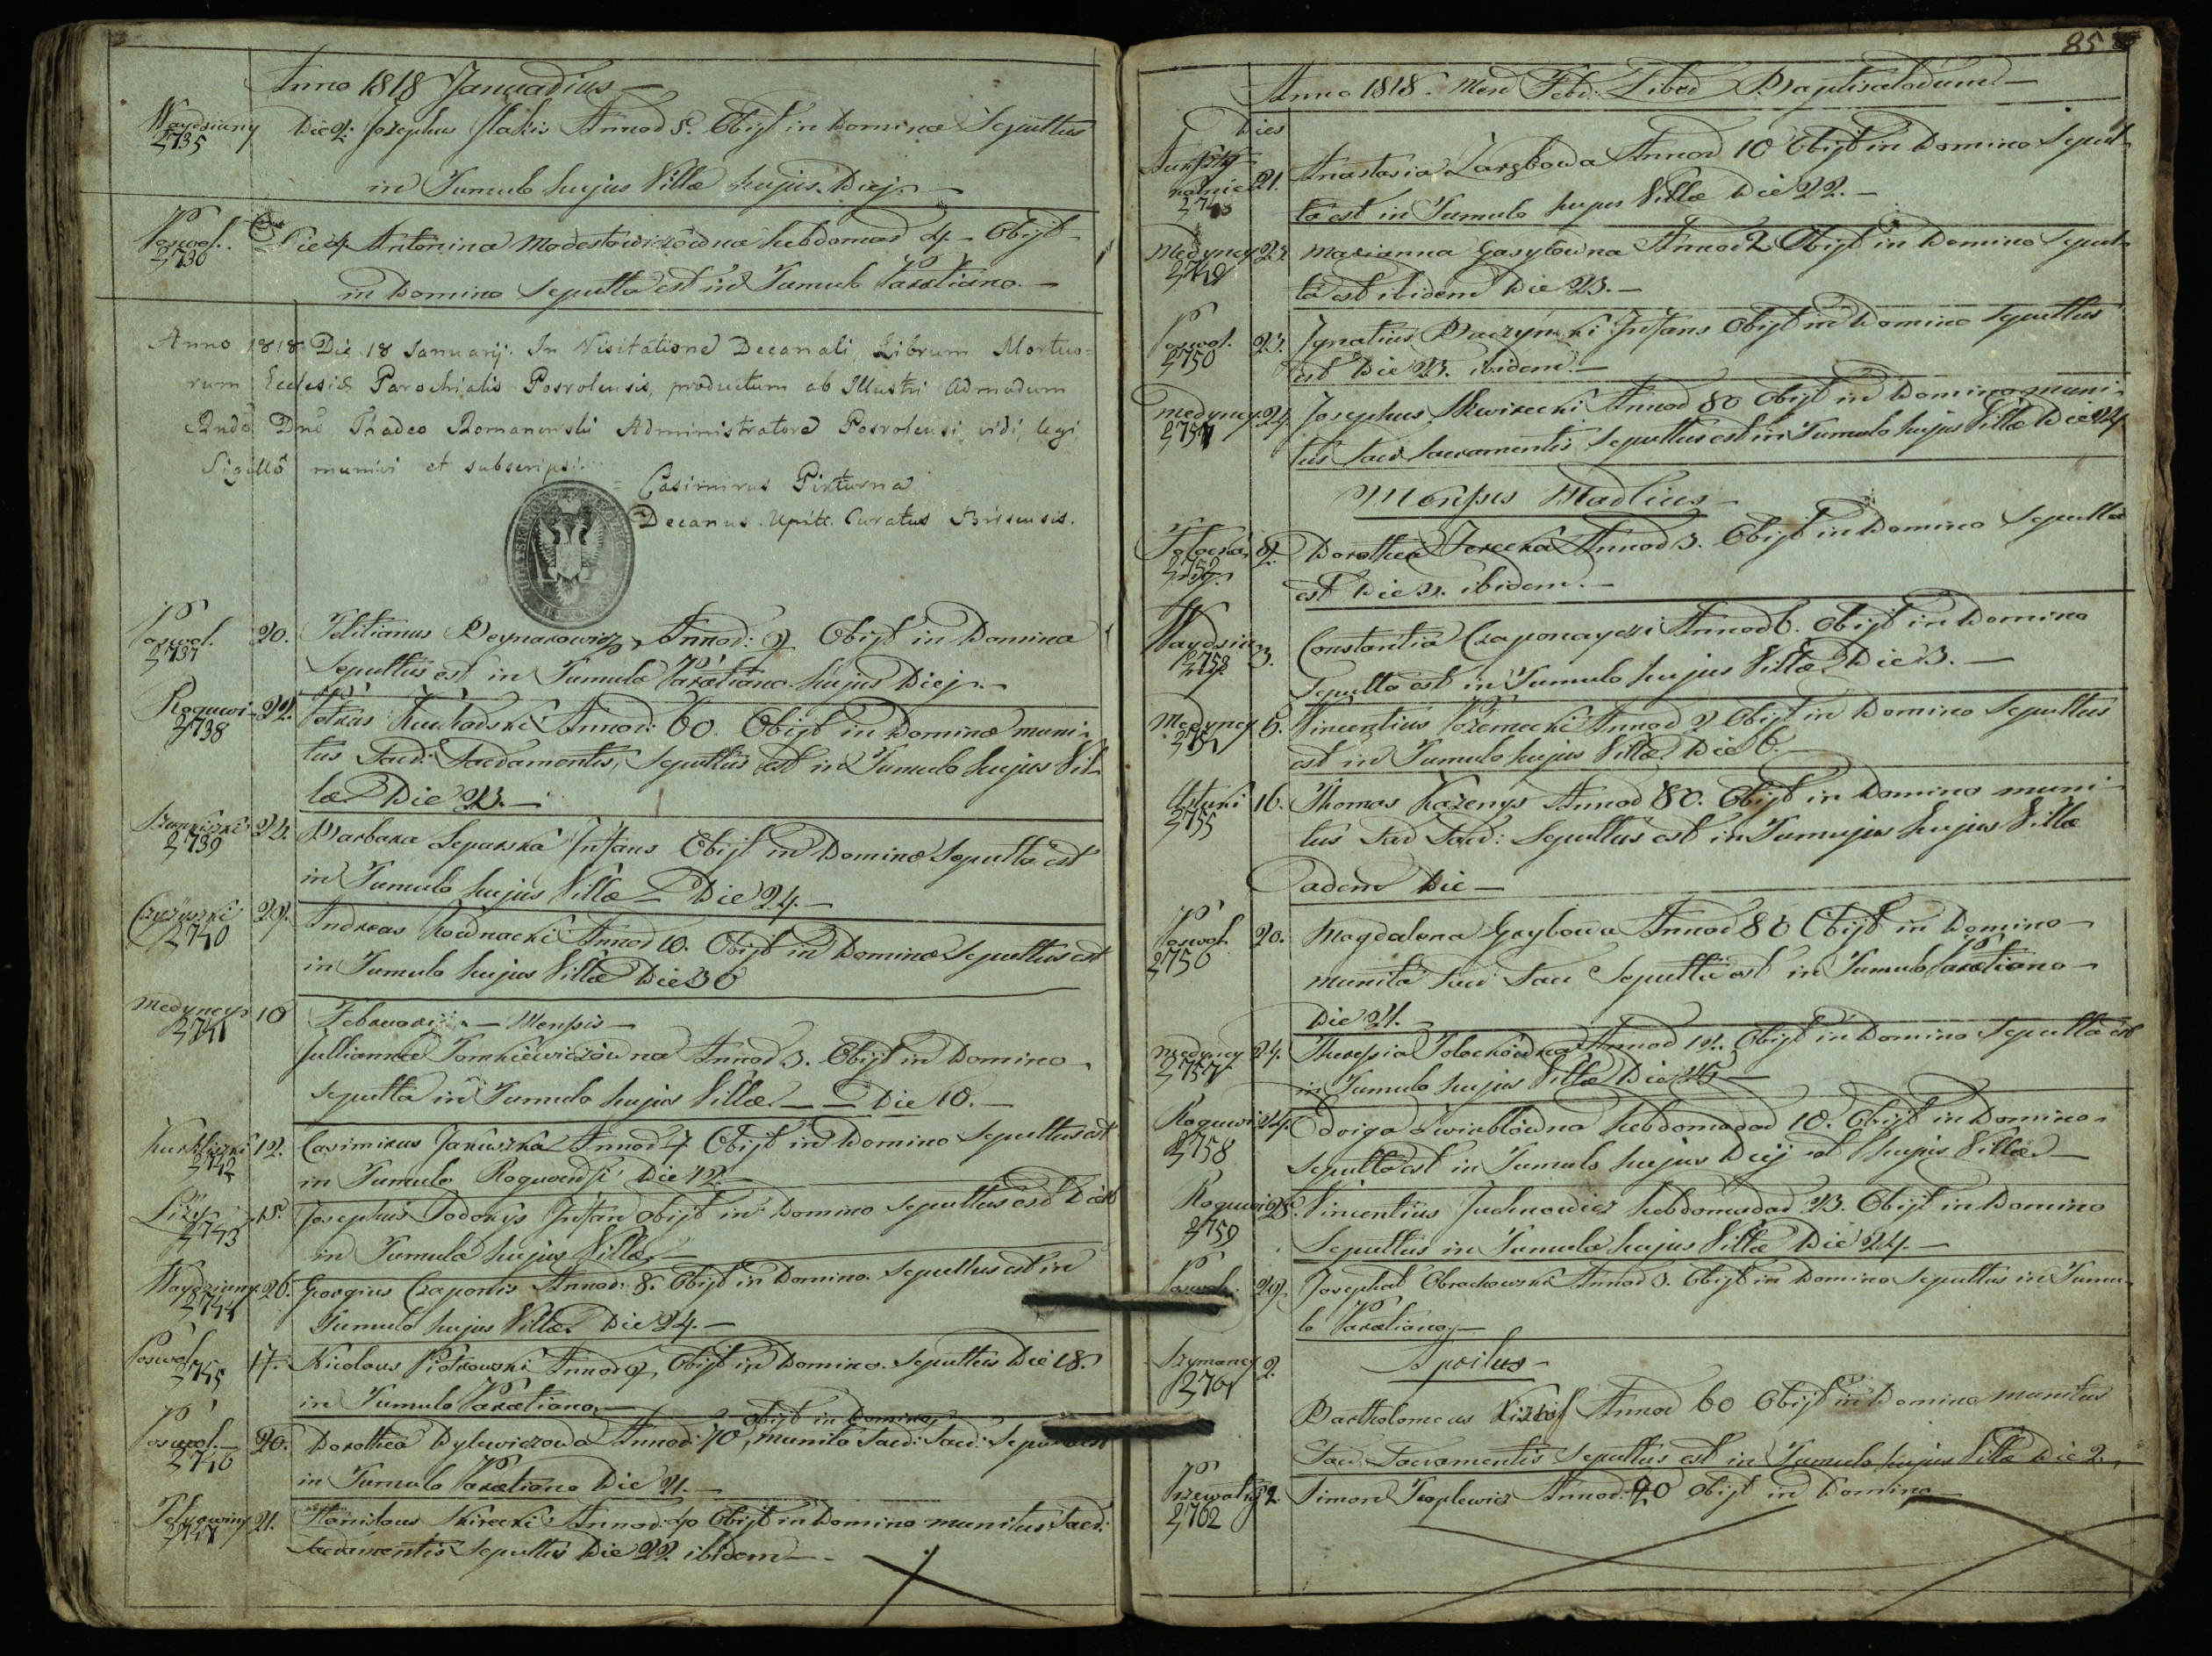 Anno 1818 Januarius
Waydziuny
2735
Die 2. Josephus Annor 5. Obijt in Domino Sepultus
in Tumulo hujus Villæ hujus Diej.
Poswol.
2736
Die 4 Antonina Modestowiczowna hebdomad 4 Obijt
in Domino Sepulta est in Tumulo Parætiano.
Anno 1818 Die 18 Januarij. In Visitatione Decanali, Librum Mortuo=
rum Ecclesiæ Parochialis Posvolensis, productum ab Illustri Admodum
Rndo Dno Thadeo Romanowski Administratore Posvolensi, vidi, legi,
Sigillo munivi et subscripsi.
Casimirus Pikturna
Decanus Upite. Curatus Birsensis.
Poswol.
2737
20. Felitianus Reynarowicz Annor: 2 Obijt in Domino
Sepultus est in Tumulo Parætiano hujus Diej.
Roguwi
2738
22. Petrus Annor: 60. Obijt in Domino muni-
tus Sacr: Sacramentis, Sepultus est in Tumulo hujus Vil-
læ Die 23.
2739
24. Barbara Leparska Infans Obijt in Domino Sepulta est
in Tumulo hujus Villæ Die 24.
2740
29. Andreas Kownacki Annor 10. Obijt in Domino Sepultus est
in Tumulo hujus Villæ Die 30
Medyncy
2741
10 Februarij Mensis
Julianna Tomkiewiczowna Annor 3. Obijt in Domino
Sepulta in Tumulo hujus Villæ. Die 10.
2742
12. Casimirus Januszka Annor 7 Obijt in Domino Sepultus est
in Tumulo Die 12.
2743
15. Josephus Todorys Infans Obijt in Domino Sepultus est
in Tumulo hujus Villæ
Waydziuny
2744
26. Georgius Czaponis Annor: 8. Obijt in Domino. Sepultus est in
Tumulo hujus Villæ Die 24.
Poswol
2745
17. Nicolaus Piotrowski Annor 2, Obijt in Domino. Sepultus Die 18.
in Tumulo Parætiano.
Poswol.
2746
obijt in Domino,
20. Dorothea Dylewiczowa Annor: 70, munita Sacr: Sacr: Sepulta est
in Tumulo Parætiano Die 21.
2747
21. Stanislaus Skirecki Annor: 40 Obijt in Domino munitus Sacr:
Sacramentis Sepultus Die 22. ibidem
85
Anno 1818. Mens Febr: Liber
Dies
21. Anastasia Annor 10 Obijt in Domino Sepul-
ta est in Tumulo hujus Villæ Die 22.
Medyncy
2749
23. Marianna Gasylowna Annor 2 Obijt in Domino Sepul-
ta est ibidem Die 23.
Poswol.
2750
23. Ignatius Infans Obijt in Domino Sepultus
est Die 23. ibidem.
Medyncy
2751
24. Josephus Skwirecki Annor 80 Obijt in Domino muni-
tus Sacr Sacramentis Sepultus est in Tumulo hujus Villæ Die 24
Mensis Martius
2752
2. Dorothea Annor 3. Obijt in Domino Sepulta
est Die 2. ibidem.
Waydziu
2753
3. Constantia Annor 6. Obijt in Domino
Sepulta est in Tumulo hujus Villæ Die 3.
Medyncy
2754
5. Vincentius Annor 2 Obijt in Domino Sepultus
est in Tumulo hujus Villæ Die 6.
2755
16. Thomas Kazenys Annor 80. Obijt in Domino muni-
tus Sacr Sacr: Sepultus est in Tumujus hujus Villæ
Eadem Die
Poswol.
2756
20. Magdalena Grybowa Annor 80 Obijt in Domino
munita Sacr Sacr Sepulta est in Tumulo Parætiano
Die 21.
Medyncy
2757
24. Theresia Tolockowna Annor 12. Obijt in Domino Sepulta est
in Tumulo hujus Villæ Die 25
Roguwi
2758
24. Edviga Zwieblowna hebdomadar 10. Obijt in Domino
Sepulta est in Tumulo hujus Diej et hujus Villæ
Roguwi
2759
25. Vincentius Juchnowicz hebdomadar 23. Obijt in Domino
Sepultus in Tumulo hujus Villæ Die 24.
Poswol.
29. Josephat Obrachowski Annor 3. Obijt in Domino Sepultus in Tumu-
lo Parætiano.
Aprilus
Szymancy
2761
2. Bartholomeus Annor 60 Obijt in Domino munitus
Sacr. Sacramentis Sepultus est in Tumulo hujus Villæ Die 2.
2762
2 Simon Annor: 20 Obijt in Domino